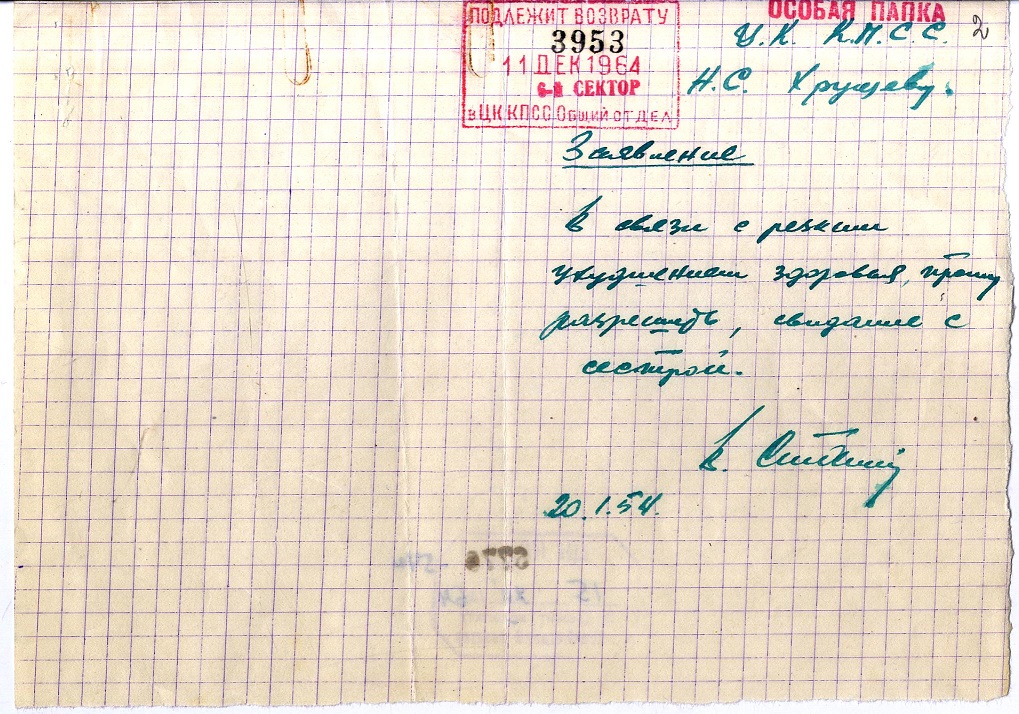 ОСОБАЯ ПАПКА
2
ПОДЛЕЖИТ ВОЗВРАТУ
3953
11 ДЕК 1964
6-й СЕКТОР
в ЦК КПСС Общий отдел
Ц.К. К.П.С.С.
Н.С. Хрущеву.
Заявление
В связи с резким
ухудшением здоровья, прошу
разрешить, свидание с
сестрой.
В.
20.1.54.